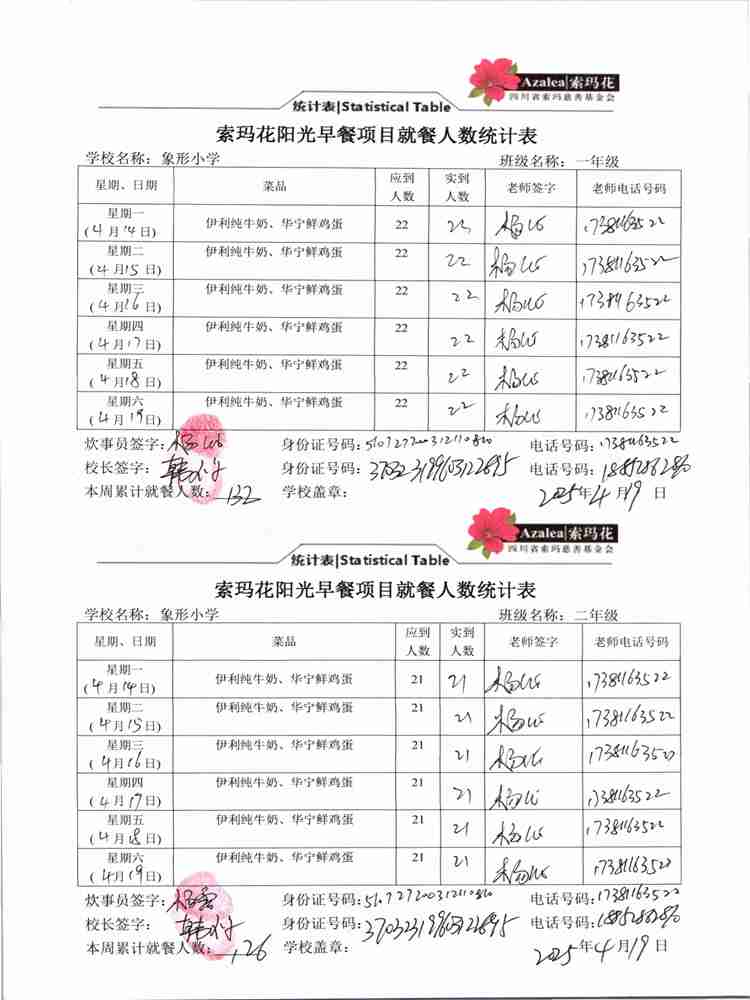 Azalea|索玛花
四川省索玛慈善基金会
统计表|Statistical Table
索玛花阳光早餐项目就餐人数统计表
学校名称：象形小学 班级名称：一年级
星期、日期 菜品 应到人数 实到人数 老师签字 老师电话号码
星期一 (4月14日) 伊利纯牛奶、华宁鲜鸡蛋 22 22 17381163522
星期二 (4月15日) 伊利纯牛奶、华宁鲜鸡蛋 22 22 17381163522
星期三 (4月16日) 伊利纯牛奶、华宁鲜鸡蛋 22 22 17381163522
星期四 (4月17日) 伊利纯牛奶、华宁鲜鸡蛋 22 22 17381163522
星期五 (4月18日) 伊利纯牛奶、华宁鲜鸡蛋 22 22 17381163522
星期六 (4月19日) 伊利纯牛奶、华宁鲜鸡蛋 22 22 17381163522
炊事员签字： 身份证号码： 电话号码：17381163522
校长签字： 身份证号码： 电话号码：
本周累计就餐人数：132 学校盖章： 2025年4月19日
Azalea|索玛花
四川省索玛慈善基金会
统计表|Statistical Table
索玛花阳光早餐项目就餐人数统计表
学校名称：象形小学 班级名称：二年级
星期、日期 菜品 应到人数 实到人数 老师签字 老师电话号码
星期一 (4月14日) 伊利纯牛奶、华宁鲜鸡蛋 21 21 17381163522
星期二 (4月15日) 伊利纯牛奶、华宁鲜鸡蛋 21 21 17381163522
星期三 (4月16日) 伊利纯牛奶、华宁鲜鸡蛋 21 21 17381163522
星期四 (4月17日) 伊利纯牛奶、华宁鲜鸡蛋 21 21 17381163522
星期五 (4月18日) 伊利纯牛奶、华宁鲜鸡蛋 21 21 17381163522
星期六 (4月19日) 伊利纯牛奶、华宁鲜鸡蛋 21 21 17381163522
炊事员签字： 身份证号码： 电话号码：17381163522
校长签字： 身份证号码： 电话号码：
本周累计就餐人数：126 学校盖章： 2025年4月19日